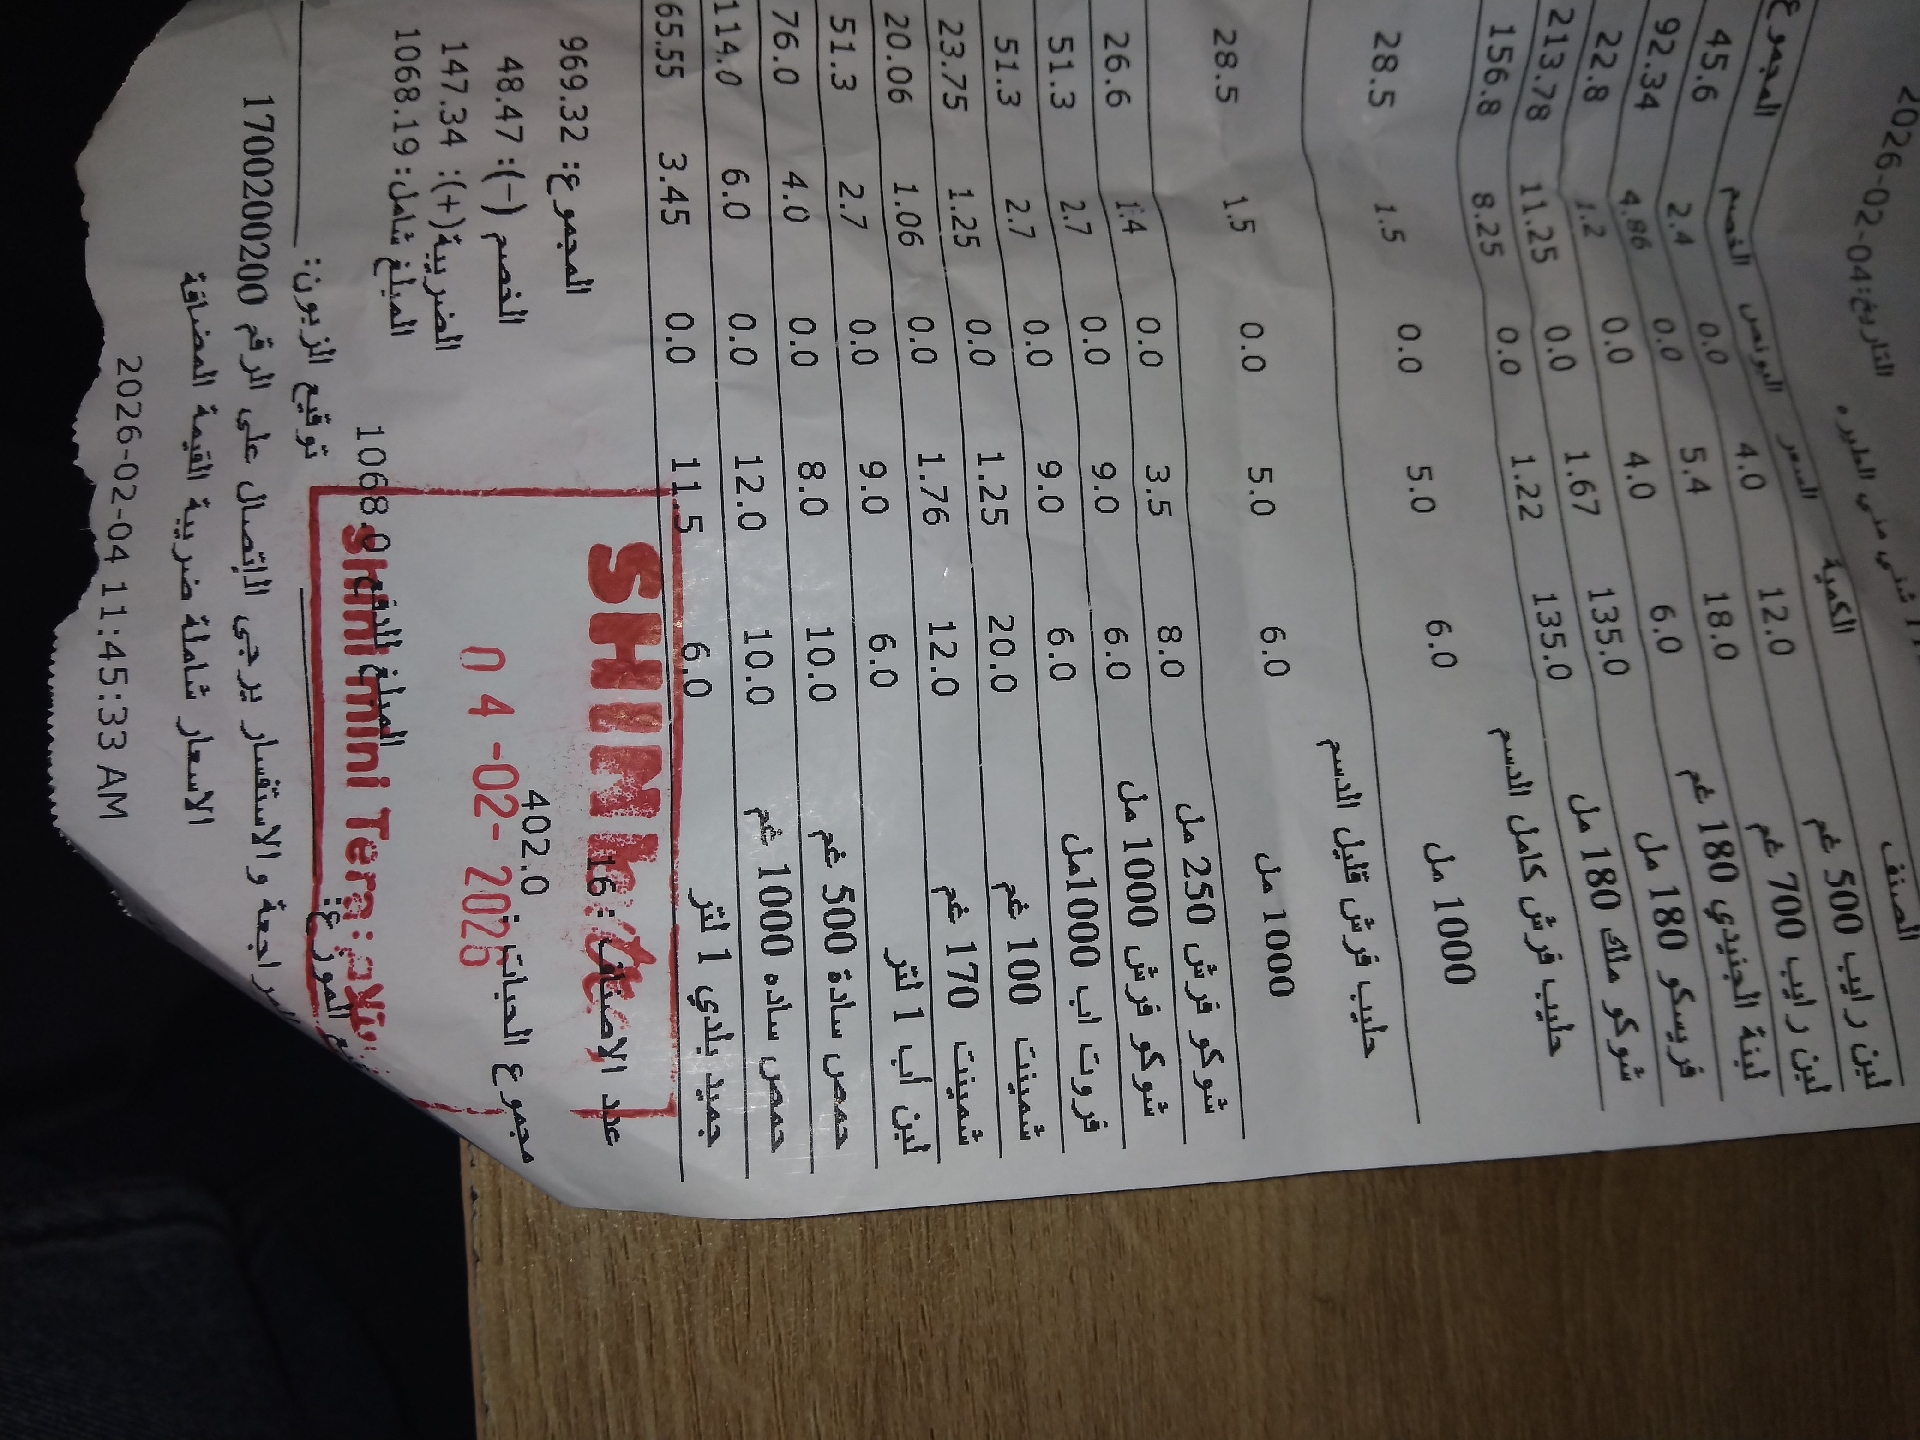 شني مني الطيره
التاريخ:2026-02-04
الصنف الكمية السعر البونص الخصم المجموع
لبن رايب 500 غم 12.0 4.0 0.0 2.4 45.6
لبن رايب 700 غم 18.0 5.4 0.0 4.86 92.34
لبنة الجنيدي 180 غم 6.0 4.0 0.0 1.2 22.8
فريسكو 180 مل 135.0 1.67 0.0 11.25 213.78
شوكو ملك 180 مل 135.0 1.22 0.0 8.25 156.8
حليب فرش كامل الدسم
1000 مل 6.0 5.0 0.0 1.5 28.5
حليب فرش قليل الدسم
1000 مل 6.0 5.0 0.0 1.5 28.5
شوكو فرش 250 مل 8.0 3.5 0.0 1.4 26.6
شوكو فرش 1000 مل 6.0 9.0 0.0 2.7 51.3
فروت اب 1000مل 6.0 9.0 0.0 2.7 51.3
شمينت 100 غم 20.0 1.25 0.0 1.25 23.75
شمينت 170 غم 12.0 1.76 0.0 1.06 20.06
لبن اب 1 لتر 6.0 9.0 0.0 2.7 51.3
حمص سادة 500 غم 10.0 8.0 0.0 4.0 76.0
حمص ساده 1000 غم 10.0 12.0 0.0 6.0 114.0
جميد بلدي 1 لتر 6.0 11.5 0.0 3.45 65.55
عدد الاصناف: 16
المجموع: 969.32
مجموع الحبات: 402.0
الخصم (-): 48.47
الضريبة(+): 147.34
المبلغ شامل: 1068.19
04-02-2026
المبلغ المدفوع: 1068.0
Shini mini Tera:
الموزع:
توقيع الزبون:
للمراجعة والاستفسار يرجى الاتصال على الرقم 1700200200
الاسعار شاملة ضريبة القيمة المضافة
2026-02-04 11:45:33 AM